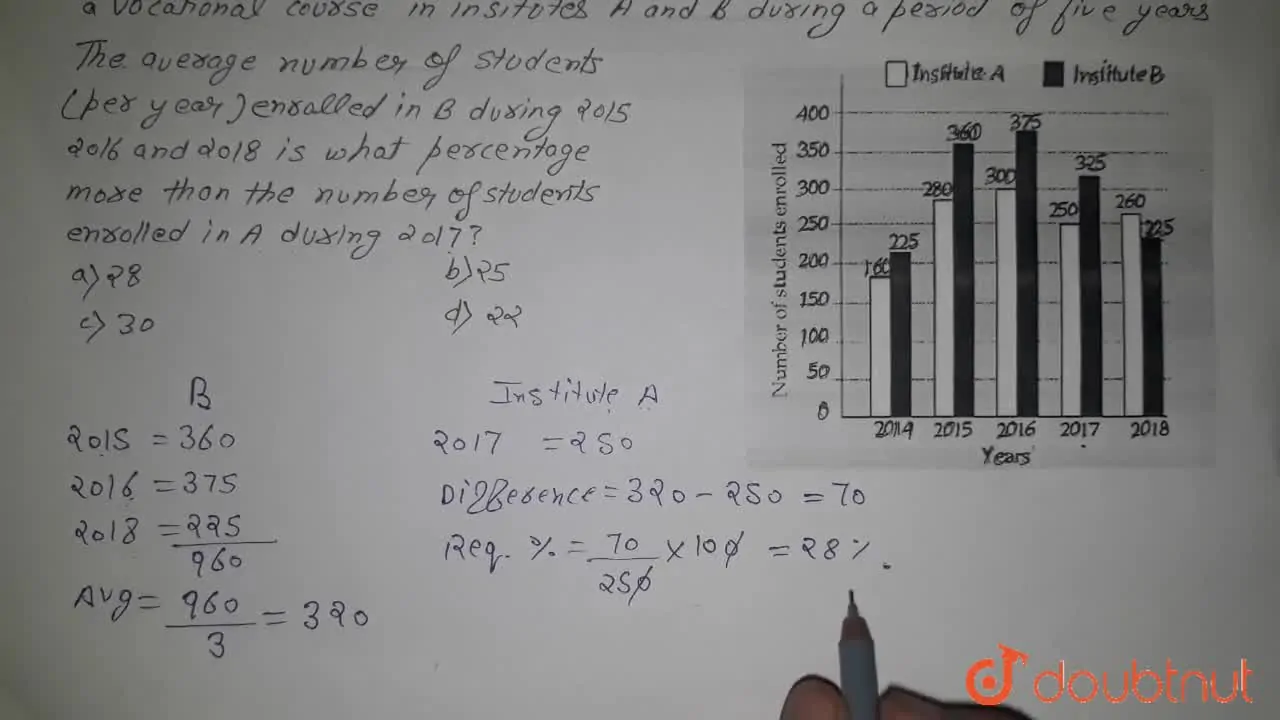 a vocational course in insitutes A and B during a period of five years
The average number of students
(per year) enrolled in B during 2015
2016 and 2018 is what percentage
more than the number of students
enrolled in A during 2017?
a) 28
b) 25
c) 30
d) 22
Institute A
Institute B
Number of students enrolled
400
350
300
250
200
150
100
50
0
160
225
280
360
300
375
250
325
260
225
2014 2015 2016 2017 2018
Years
B
2015 = 360
2016 = 375
2018 = 225
960
Avg = 960 = 320
3
Institute A
2017 = 250
Difference = 320 - 250 = 70
Req. % = 70 × 100 = 28 %.
250
doubtnut